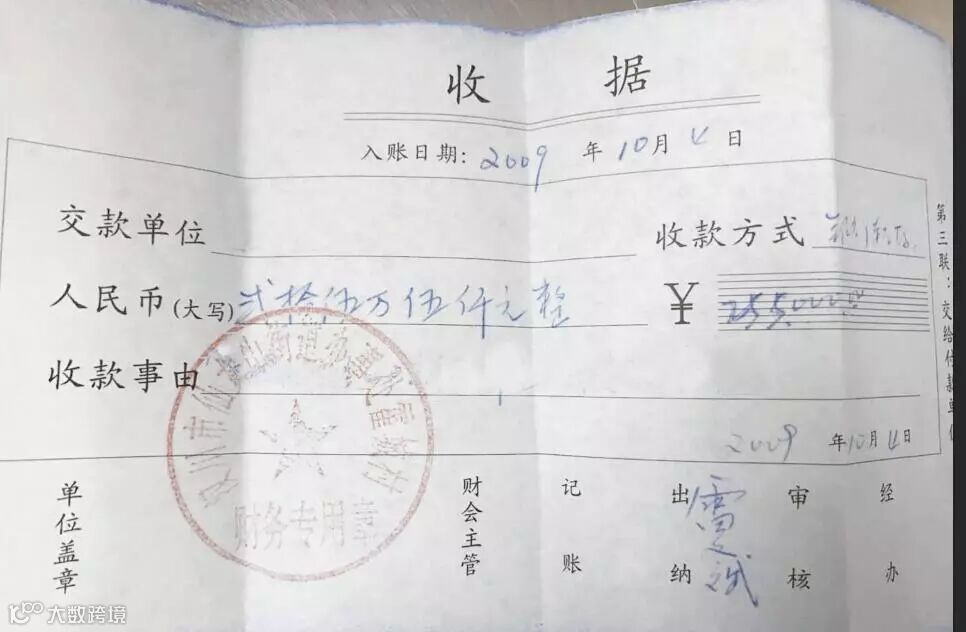 收 据
入账日期: 2009 年 10月 4 日
交款单位 收款方式
人民币(大写) 贰拾伍万伍仟元整 ¥ 255000.00
收款事由
2009 年10月4日
单位盖章 财会主管 记账 出纳 雷 审核 经办
第三联:交给付款单位
汉川市仙女山街道办 村
财务专用章
大数跨境